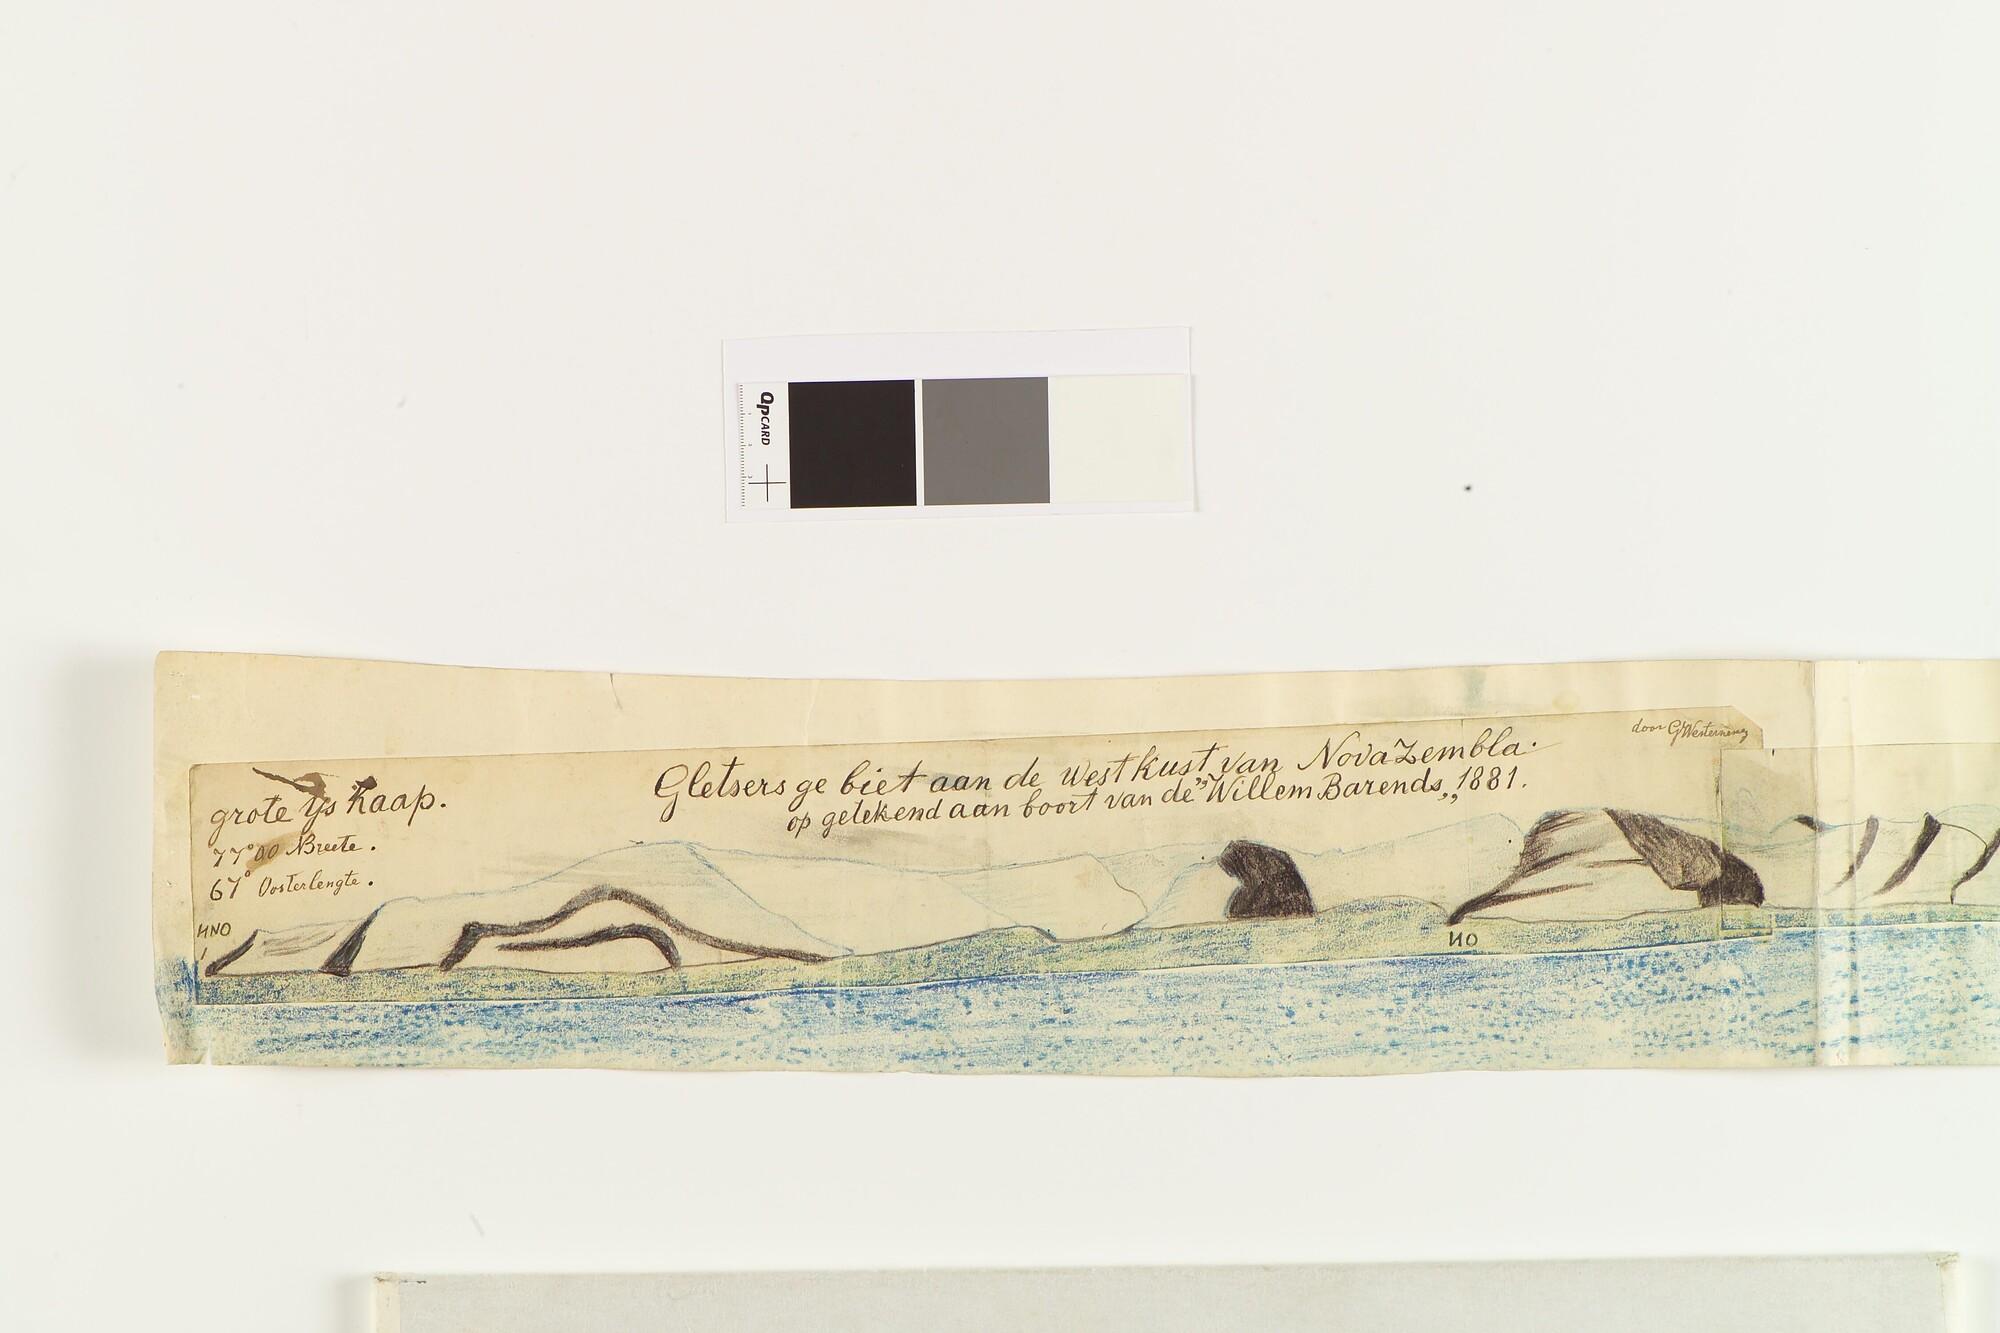 QPCARD
door G Westerneng
Gletsers ge biet aan de westkust van Nova Zembla.
op getekend aan boort van de "Willem Barends,, 1881.
grote ys kaap.
77°00 NBreete.
67° Oosterlengte.
NNO
NO